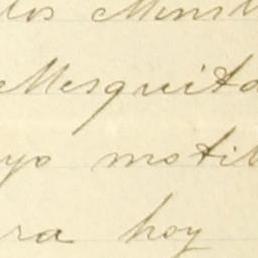 los Minist
Mesquita
yo motiv
ra hoy